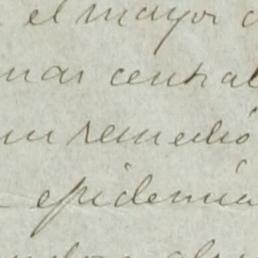 el mayor
mas central
un remedio
epidemia